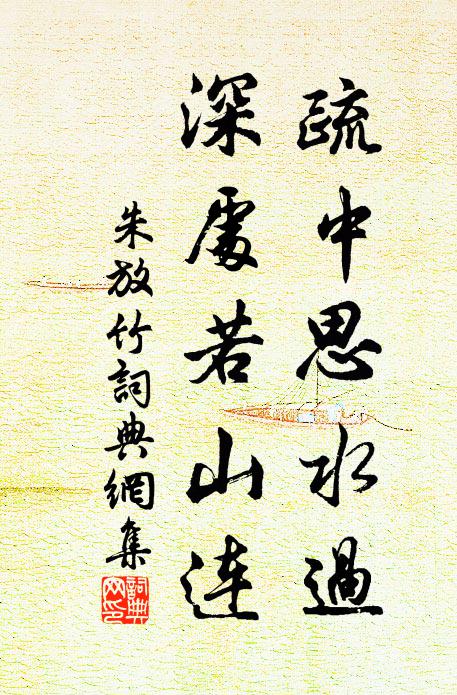 疏中思水過
深處若山連
朱放竹詞典網集
詞典網印